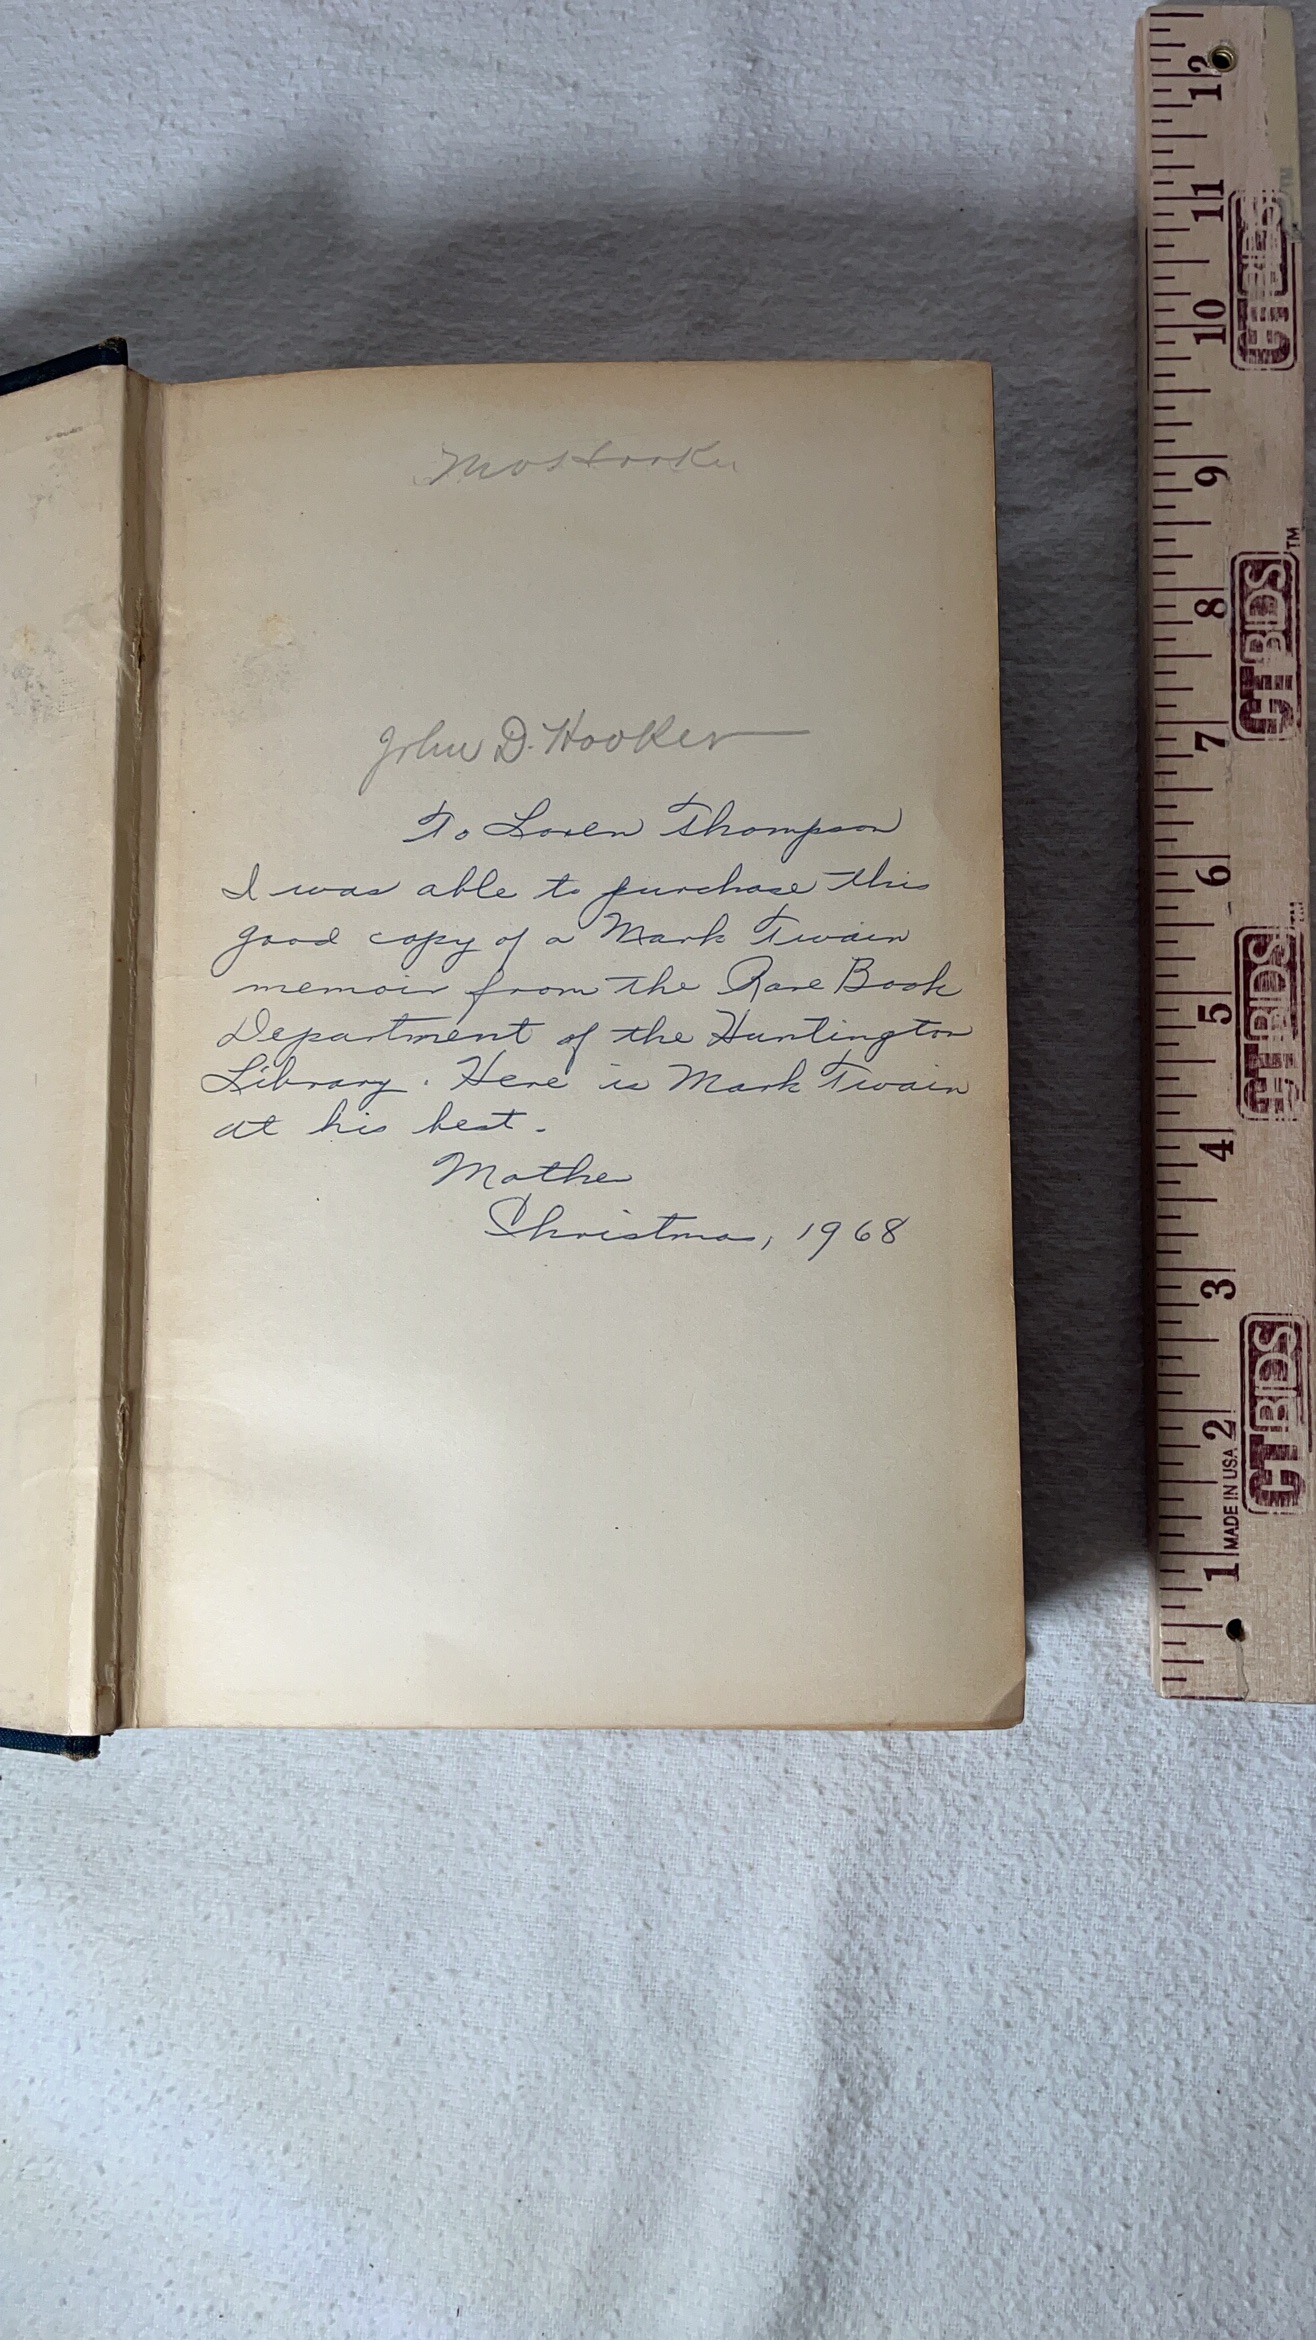 Hooker
John D. Hooker
To Loren Thompson
I was able to purchase this
good copy of a Mark Twain
memoir from the Rare Book
Department of the Huntington
Library. Here is Mark Twain
at his best.
Mother
Christmas, 1968
12
11
10
9
8
7
6
5
4
3
2
1
MADE IN USA
CTBIDS
CTBIDS™
CTBIDS
CTBIDS